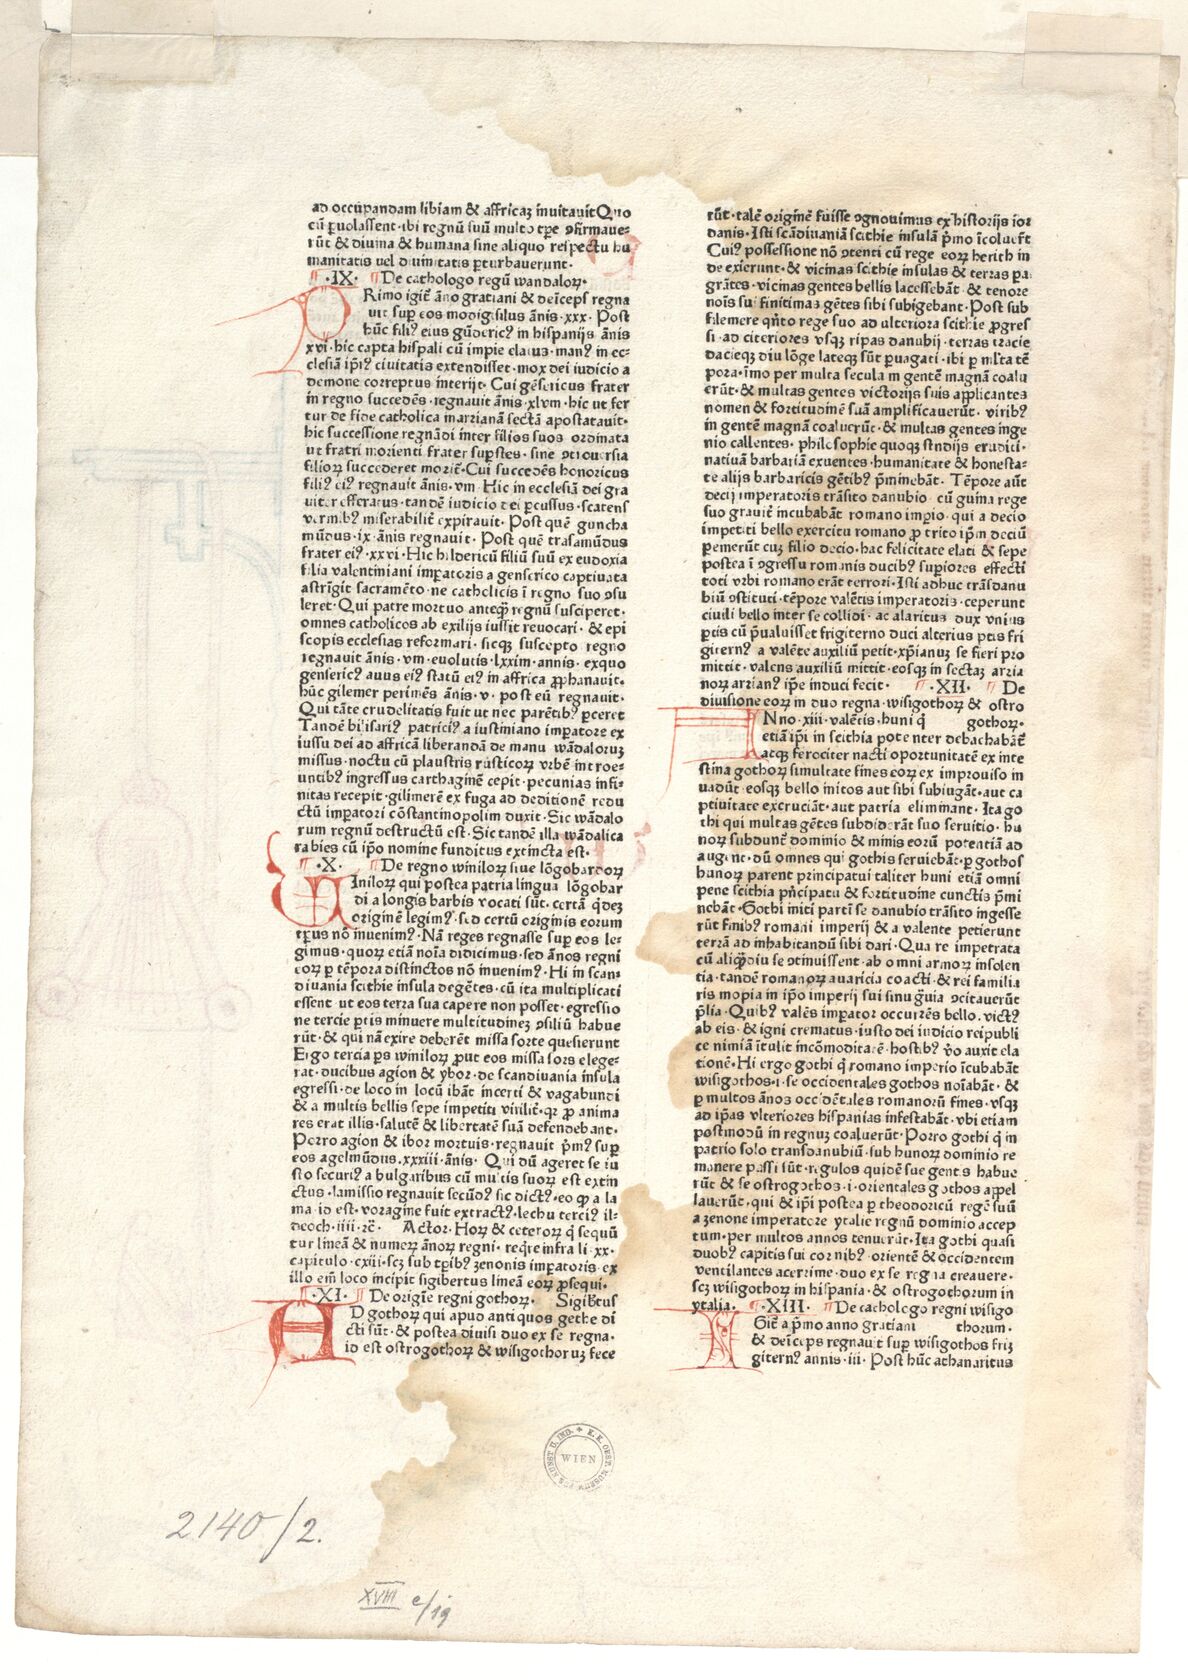 ad occupandam libiam & affricaȝ inuitauit Quo
cū ꝑuolassent·ibi regnū suū multo tꝑe ꝯfirmaue-
rūt & diuina & humana sine aliquo respectu hu
manitatis vel diuinitatis ꝑturbauerunt·
¶·IX· ¶De cathologo regū wandaloꝝ·
PRimo igiť āno gratiani & deīceps regna
uit suꝑ eos modigisilus ānis·xxx·Post
hūc filiꝰ eius gūdericꝰ in hispanijs ānis
xvi·hic capta hispali cū impie elatus·manꝰ in ec-
clesiā ip̄iꝰ ciuitatis extendisset·mox dei iudicio a
demone correptus interijt·Cui gēsericus frater
in regno succedēs·regnauit ānis·xlvm·hic ut fer
tur de fide catholica in arrianā sectā apostatauit·
hic successione regnādi inter filios suos ordinata
ut fratri morienti frater suꝑstes·sine ꝯtrouersia
filioꝝ succederet moriť·Cui succedēs honoricus
filiꝰ eiꝰ regnauit ānis·vm·Hic in ecclesiā dei gra
uiter efferatus·tandē iudicio dei ꝑcussus·scatens
vermibꝰ miserabiliť expirauit·Post quē guncha
mūdus·ix·ānis regnauit·Post quē trasamūdus
frater eiꝰ·xxvi·Hic hildericū filiū suū ex eudoxia
filia valentiniani imꝑatoris a genserico captiuata
astrīgit sacramēto·ne catholicis ī regno suo ꝯsu
leret·Qui patre mortuo anteꝗ̄ regnū susciperet·
omnes catholicos ab exilijs iussit reuocari·& epi
scopis ecclesias reformari·sicqꝫ suscepto regno
regnauit ānis·vm·euolutis·lxxiim·annis·exquo
gensericꝰ auus eiꝰ statū eiꝰ in affrica ꝓphanauit·
hūc gilemer perimēs ānis·v·post eū regnauit·
Qui tāte crudelitatis fuit ut nec parētibꝰ ꝑceret
Tandē bilisariꝰ patriciꝰ a iustiniano imꝑatore ex
iussu dei ad affricā liberandā de manu wādaloruȝ
missus·noctu cū plaustris rusticoꝝ vrbē introe-
untibꝰ ingressus carthaginē cepit·pecunias infi-
nitas recepit·gilimerē ex fuga ad deditionē redu
ctū imꝑatori cōstantinopolim duxit·Sic wādalo
rum regnū destructū est·Sic tandē illa wādalica
rabies cū ip̄o nomine funditus extincta est·
¶·X· ¶De regno winiloꝝ siue lōgobardoꝝ
WIniloꝝ qui postea patria lingua lōgobar
di a longis barbis vocati sūt·certā q̇deȝ
originē legimꝰ·sed certū originis eorum
tꝑus nō inuenimꝰ·Nā reges regnasse suꝑ eos le-
gimus·quoꝝ etiā noīa didicimus·sed ānos regni
eoꝝ ꝑ tēpora distinctos nō inuenimꝰ·Hi in scan-
diuania scithie insula degētes·cū ita multiplicati
essent ut eos terra sua capere non posset·egressio
ne tercie ꝑtis minuere multitudineȝ ꝯsiliū habue
rūt·& qui nā exire deberēt missa sorte quesierunt
Ergo tercia ꝑs winiloꝝ ꝓut eos missa sors elege-
rat·ducibus agion & ybor·de scandiuania insula
egressi·de loco in locū ibāt incerti & vagabundi
& a multis bellis sepe impetiti viriliť·qꝛ ꝓ anima
res erat illis·salutē & libertatē suā defendebant·
Porro agion & ibor mortuis·regnauit p̄mꝰ suꝑ
eos agelmūdus·xxxiii·ānis· Qui dū ageret se iu
sto securiꝰ a bulgaribus cū multis suoꝝ est extin
ctus·lamissio regnauit secūdꝰ sic dictꝰ·eo ꝙ a la
ma id est·voragine fuit extractꝰ·lechu terciꝰ il-
deoch·iiii·ꝛč· Actor·Hoꝝ & ceteroꝝ q̇ sequū
tur lineā & numeꝝ ānoꝝ regni·reqͥre infra li·xx·
capitulo·cxiii·scȝ sub tꝑibꝰ zenonis imꝑatoris ex
illo em̄ loco incipit sigibertus lineā eoꝝ ꝓsequi·
¶·XI· ¶De origīe regni gothoꝝ· Sigib̄tus
AD gothoꝝ qui apud antiquos gethe di
cti sūt·& postea diuisi duo ex se regna·
id est ostrogothoꝝ & wisigothoruȝ fece
rūt·talē originē fuisse ꝯgnouimus ex historijs ior
danis·Isti scādiuaniā scithie insulā p̄mo īcoluerūt
Cuiꝰ possessione nō ꝯtenti cū rege eoꝝ berich in
de exierunt·& vicinas scithie insulas & terras ꝑa
grātes·vicinas gentes bellis lacessebāt·& tenore
noīs sui finitimas gētes sibi subigebant·Post sub
filemere qͥnto rege suo ad ulteriora scithie ꝓgres
si·ad citeriores vsqꝫ ripas danubij·terras tracie
dacieqꝫ diu lōge lateqꝫ sūt ꝑuagati·ibi ꝑ ml̄ta tē
pora·īmo per multa secula in gentē magnā coalu
erūt·& multas gentes victorijs suis applicantes
nomen & fortitudinē suā amplificauerūt·viribꝰ
in gentē magnā coaluerūt·& multas gentes inge
nio callentes·philosophie quoqꝫ studijs eruditi·
natiuā barbariā exuentes·humanitate & honesta-
te alijs barbaricis gētibꝰ p̄minebāt· Tēpore aūt
decij imperatoris trāsito danubio cū guina rege
suo grauiť incubabāt romano imꝑio·qui a decio
impetiti bello exercitu romano ꝓtrito ip̄m deciū
ꝑemerūt cuȝ filio decio·hac felicitate elati & sepe
postea ī ꝯgressu romanis ducibꝰ suꝑiores effecti
toti vrbi romano erāt terrori·Isti adhuc trāsdanu
biū ꝯstituti·tēpore valētis imperatoris·ceperunt
ciuili bello inter se collidi·ac alaritus dux vnius
ꝑtis cū p̄ualuisset frigiterno duci alterius ꝑtis fri
giternꝰ a valēte auxiliū petit·xp̄ianuȝ se fieri pro
mittit·valens auxiliū mittit·eosqꝫ in sectaȝ arria
noꝝ arrianꝰ ip̄e induci fecit· ¶·XII· ¶De
diuisione eoꝝ in duo regna·wisigothoꝝ & ostro
ANno·xiii·valētis·huni q̇ gothoꝝ·
etiā ip̄i in scithia potenter debachabāt̄
atqꝫ ferociter nacti oportunitatē ex inte
stina gothoꝝ simultate fines eoꝝ ex improuiso in
uadūt eosqꝫ bello initos aut sibi subiugāt·aut ca
ptiuitate excruciāt·aut patria eliminant·Ita go
thi qui multas gētes subdiderāt suo seruitio·hu
noꝝ subdunt̄ dominio & minis eorū potentiā ad
augent·dū omnes qui gothis seruiebāt·ꝑ gothos
hunoꝝ parent principatui taliter huni etiā omni
pene scithia pn̄cipatu & fortitudine cunctis p̄mi
nebāt·Gothi initi partī se danubio trāsito ingesse
rūt finibꝰ romani imperij & a valente petierunt
terrā ad inhabitandū sibi dari·Qua re impetrata
cū aliqͣdiu se ꝯtinuissent·ab omni armoꝝ insolen
tia·tandē romanoꝝ auaricia coacti·& rei familia
ris inopia in ip̄o imperij sui sinu ḡuia ꝯcitauerūt
p̄lia·Quibꝰ valēs imꝑator occurrēs bello·victꝰ
ab eis·& igni crematus·iusto dei iudicio reipubli
ce nimiā ītulit incōmoditatē·hostibꝰ v̊o auxit ela
tionē·Hi ergo gothi q̇ romano imperio īcubabāt
wisigothos·i·se occidentales gothos noīabāt·&
ꝑ multos ānos occidētales romanorū fines·vsqꝫ
ad ip̄as vlteriores hispanias infestabāt·vbi etiam
postmodū in regnuȝ coaluerūt·Porro gothi q̇ in
patrio solo transdanubiū·sub hunoꝝ dominio re
manere passi sūt·regulos quidē sue gentis habue
rūt & se ostrogothos·i·orientales gothos appel
lauerūt·qui & ip̄i postea ꝑ theodoricū regē suū
a zenone imperatore ytalie regnū dominio accep
tum·per multos annos tenuerūt·Ita gothi quasi
duobꝰ capitis sui cornibꝰ·orientē & occidentem
ventilantes acerrime·duo ex se regna creauere·
scȝ wisigothoꝝ in hispania·& ostrogothorum in
ytalia· ¶·XIII· ¶De cathologo regni wisigo
IGiť a p̄mo anno gratiani thorum·
& deīceps regnauit suꝑ wisigothos friȝ
giternꝰ annis·iii·Post hūc athanaricus
K.K. OEST. MUSEUM FÜR KUNST U. IND.
WIEN
2140/2.
XVIII e/19